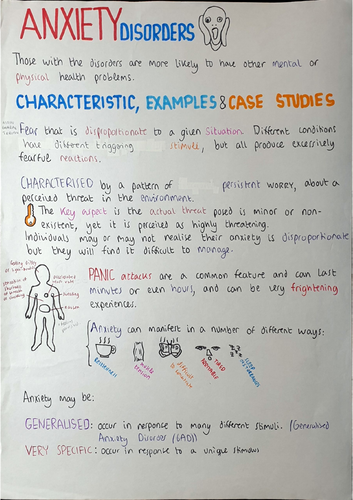 ANXIETY DISORDERS
Those with the disorders are more likely to have other mental or
physical health problems.
CHARACTERISTIC, EXAMPLES & CASE STUDIES
Fear that is disproportionate to a given situation. Different conditions
have different triggering stimuli, but all produce excessively
fearful reactions.
CHARACTERISED by a pattern of persistent worry, about a
perceived threat in the environment.
The key aspect is the actual threat posed is minor or non-
existent, yet it is perceived as highly threatening.
Individuals may or may not realise their anxiety is disproportionate
but they will find it difficult to manage.
PANIC attacks are a common feature and can last
minutes or even hours, and can be very frightening
experiences.
Anxiety can manifest in a number of different ways:
Restlessness
muscle tension
difficult to concentrate
IRRITABLE
TIRED
SLEEP
Anxiety may be:
GENERALISED: occur in response to many different stimuli. (Generalised
Anxiety Disorder (GAD))
VERY SPECIFIC: occur in response to a unique stimulus